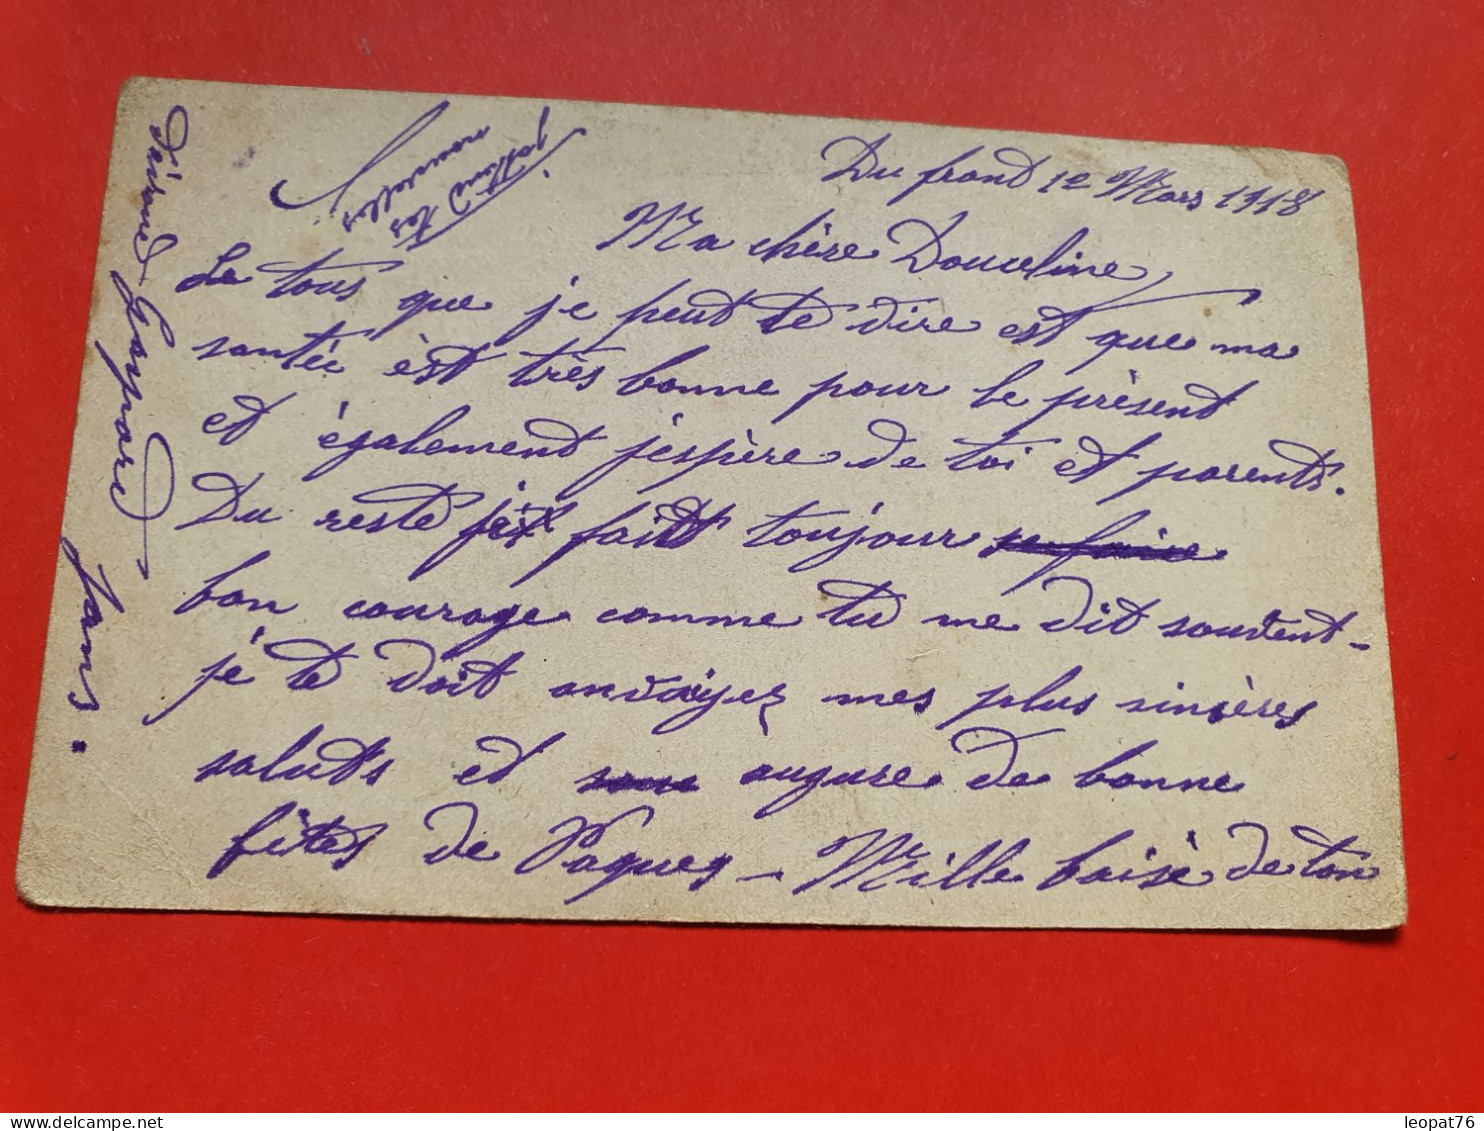 Du front 12 Mars 1918
Ma chère Douceline
Le tous que je peut te dire est que ma
santée èst très bonne pour le présent
et également j'espère de toi et parents.
Du reste fait toujour se faire
bon courage comme tu me dit souvent-
je te doit anvoiyez mes plus sincères
saluts et augure de bonne
fêtes de Paques - Mille baisé de ton
j'attend tes
nouvelles